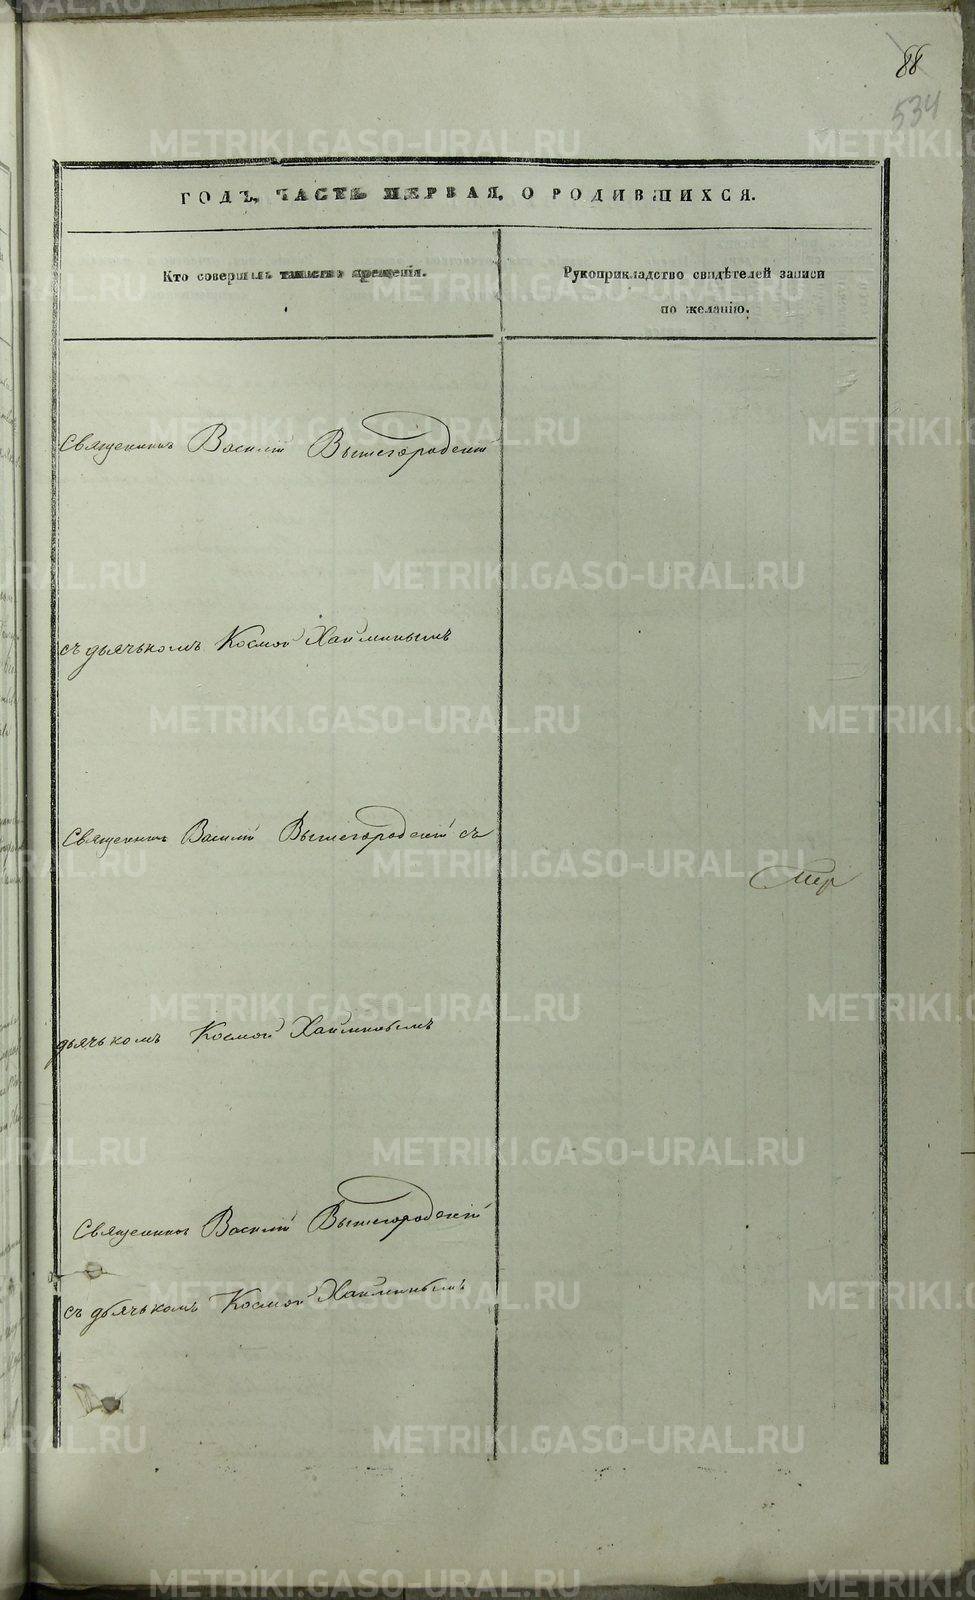 88
534
ГОДЪ, ЧАСТЬ ПЕРВАЯ, О РОДИВШИХСЯ.
Кто совершалъ таинство крещенія.
Рукоприкладство свидѣтелей записи
по желанію.
Священникъ Василій Вышегородскій
съ дьячькомъ Космой Хайминымъ
Священникъ Василій Вышегородскій съ
дьячькомъ Космой Хайминымъ
Священникъ Василій Вышегородскій
съ дьячькомъ Космой Хайминымъ
METRIKI.GASO-URAL.RU